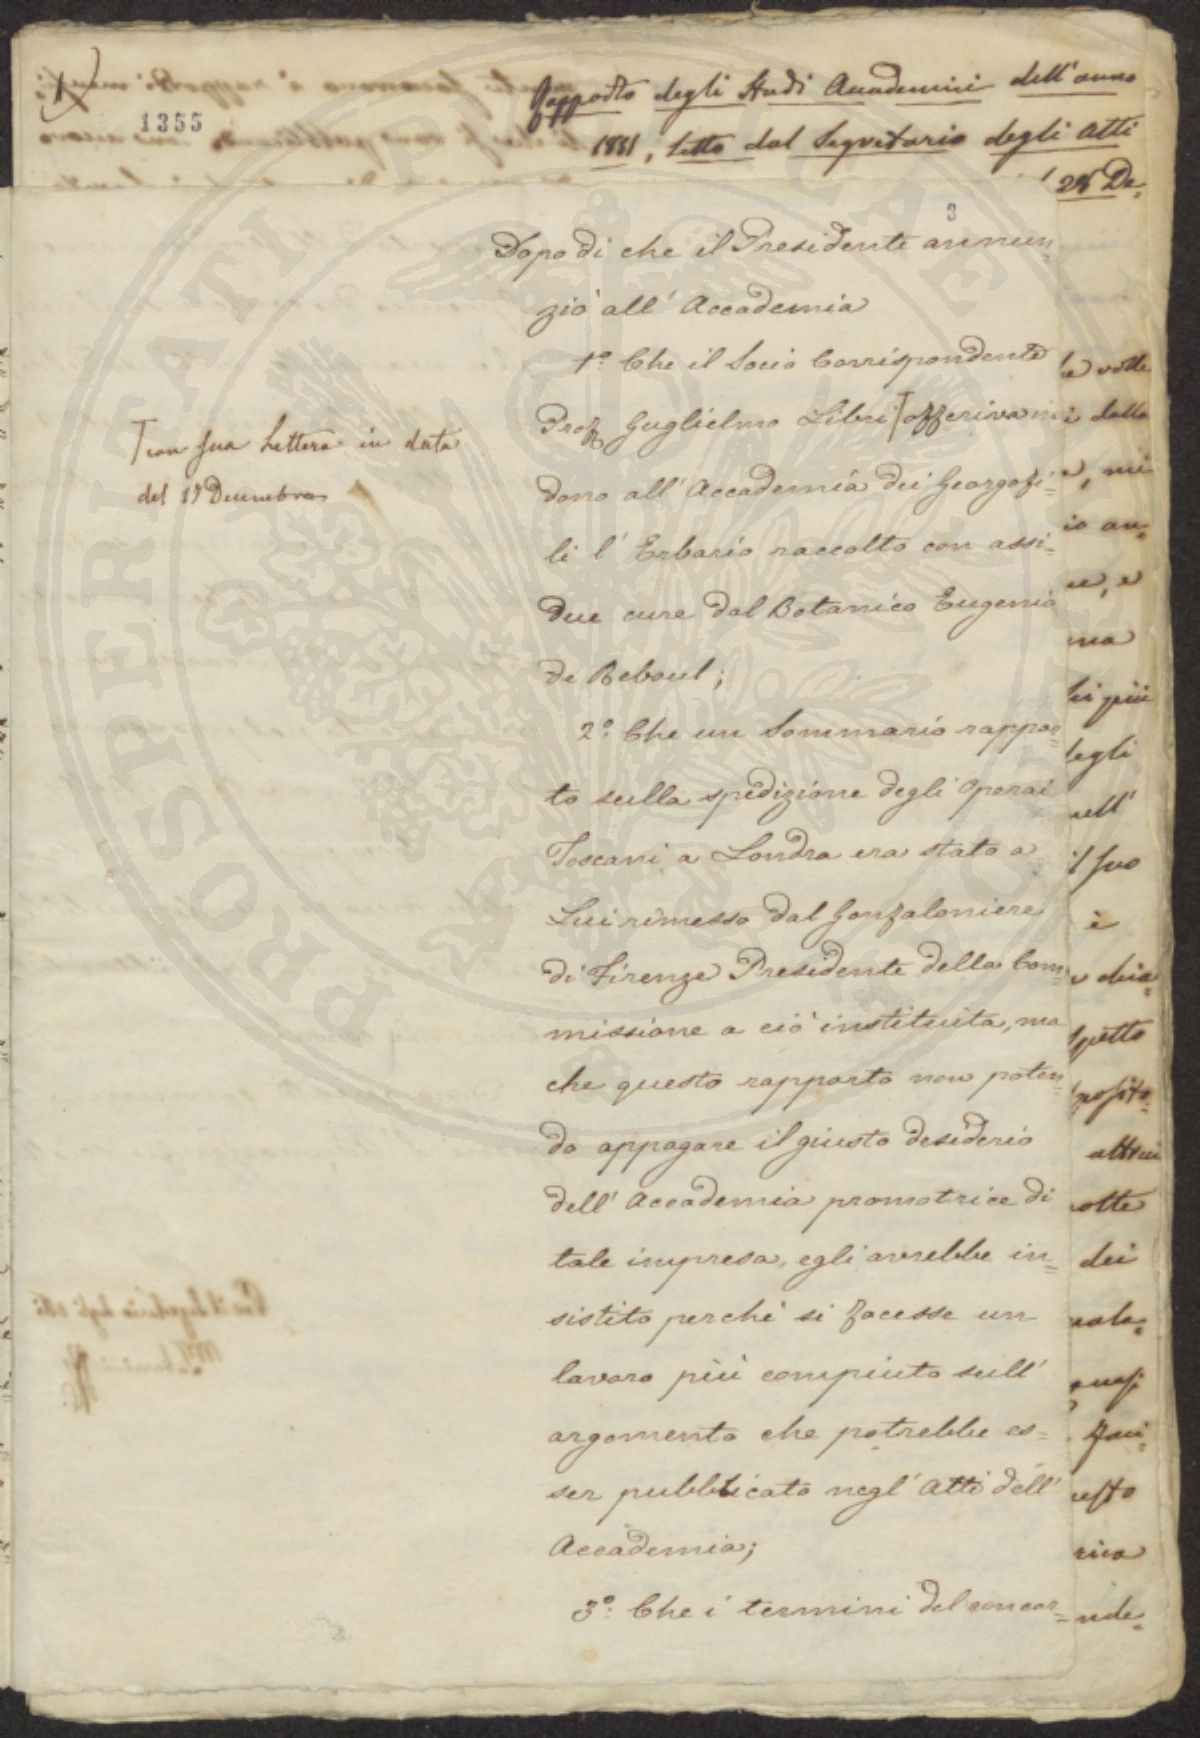 1355
Rapporto degli Studi Accademici dell'anno
1851, letto dal Segretario degli Atti
De=
3
Dopo di che il Presidente annun=
ziò all'Accademia
1º. Che il Socio Corrispondente
Prof. Guglielmo Libri offeriva in
dono all'Accademia dei Georgofi=
li l'Erbario raccolto con assi=
due cure dal Botanico Eugenio
de Reboul;
2º. Che un Sommario rappor=
to sulla spedizione degli Operai
Toscani a Londra era stato a
Lui rimesso dal Gonfaloniere
di Firenze Presidente della Com=
missione a ciò instituita, ma
che questo rapporto non poten=
do appagare il giusto desiderio
dell'Accademia promotrice di
tale impresa, egli avrebbe in=
sistito perchè si facesse un
lavoro più compiuto sull'
argomento che potrebbe es=
ser pubblicato negl'Atti dell'
Accademia;
3º. Che i termini del concor=
con sua Lettera in data
del 19 Decembre
volte
dalla
mi
più
degli
nell'
il suo
è
altrui
dei
PROSPERITATI PUBLICAE AUGENDAE